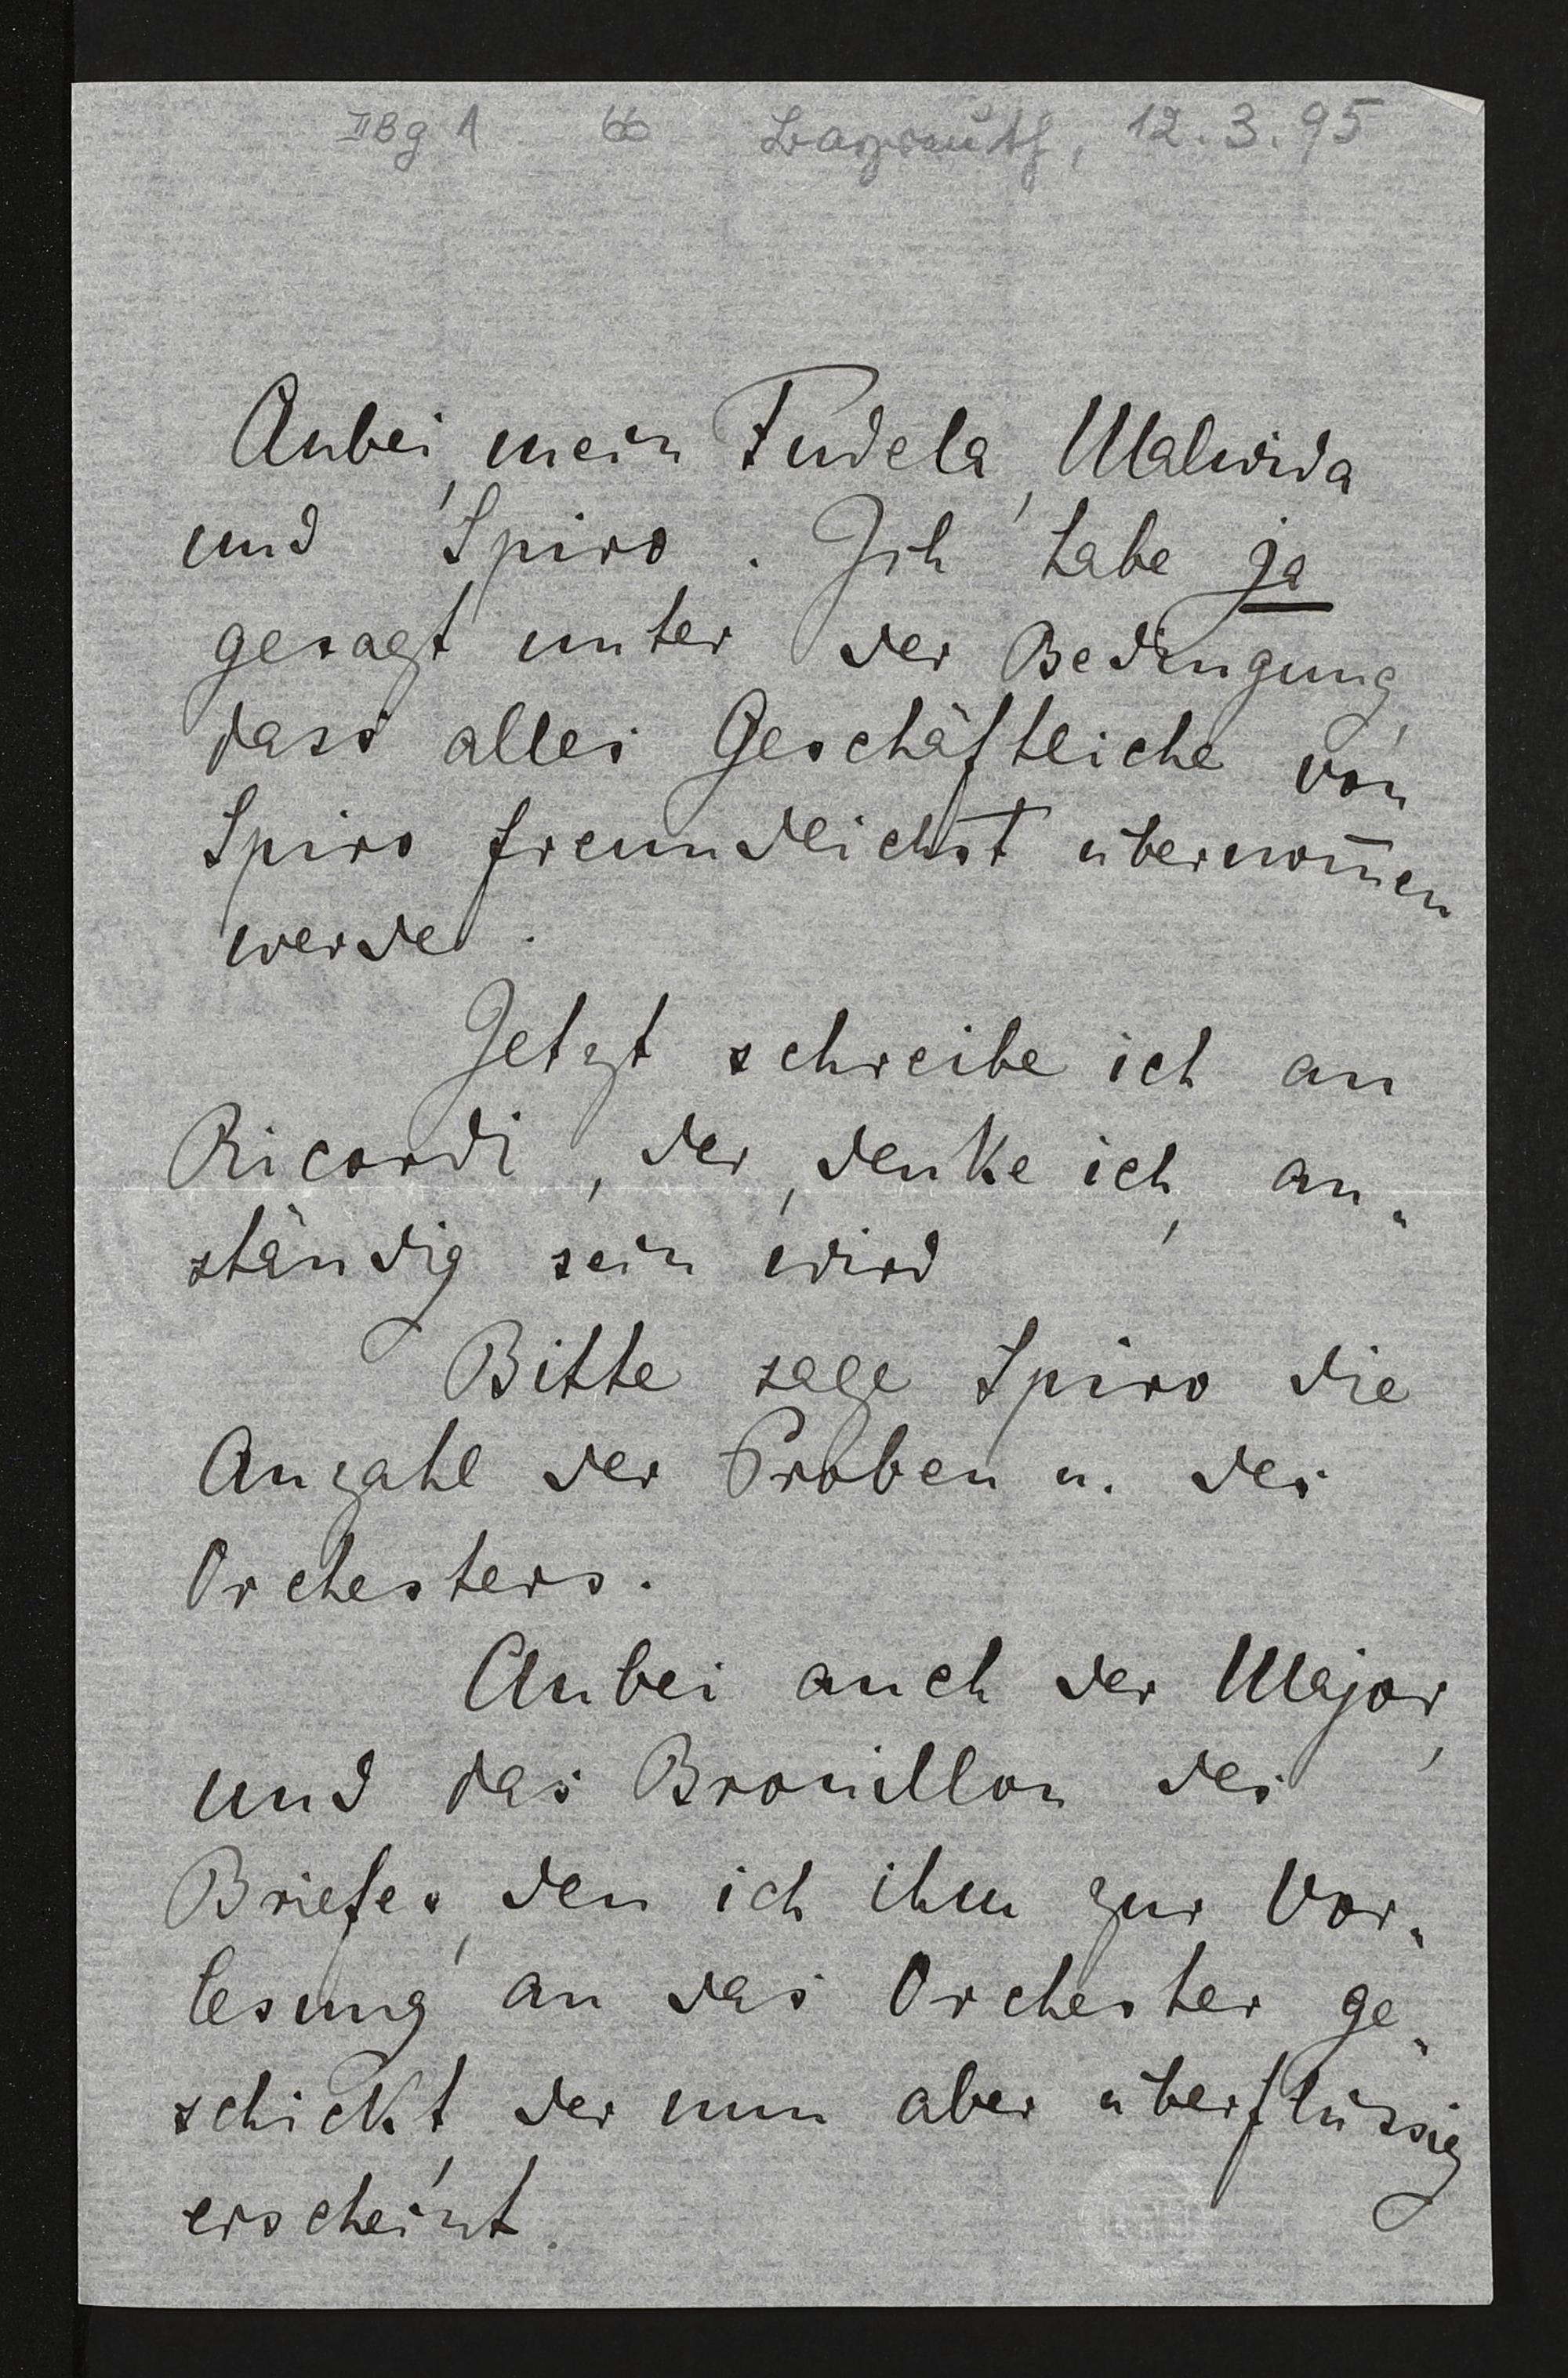 II Bg 1 66 Bayreuth, 12.3.95
Anbei, mein Fudela, Malwida
und Spiro. Ich habe ja
gesagt unter der Bedingung,
dass alles Geschäftliche von
Spiro freundlichst übernom̅en
werde.
Jetzt schreibe ich an
Ricordi, der, denke ich, an-
ständig sein wird
Bitte sage Spiro die
Anzahl der Proben u. des
Orchesters.
Anbei auch der Major,
und das Brouillon des
Briefes, den ich ihm zur Vor-
lesung an das Orchester ge-
schickt, der nun aber überflüssig
erscheint.